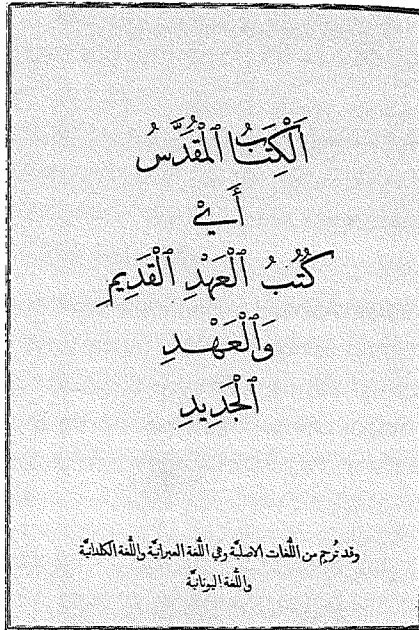 اَلْكِتَابُ ٱلْمُقَدَّسُ
أَيْ
كُتُبُ ٱلْعَهْدِ ٱلْقَدِيمِ
وَٱلْعَهْدِ
ٱلْجَدِيدِ
وقد تُرجم من اللُّغات الاصليَّة وهي اللُّغة العبرانيَّة واللُّغة الكلدانيَّة
واللُّغة اليونانيَّة